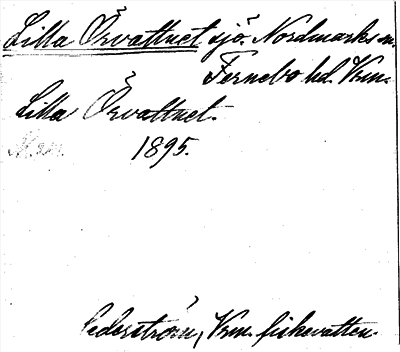 Lilla Örvattnet sjö. Nordmarks sn.
Fernebo hd. Vrm.
Lilla Örvattnet.
1895.
Cederström, Vrm. fiskevatten.